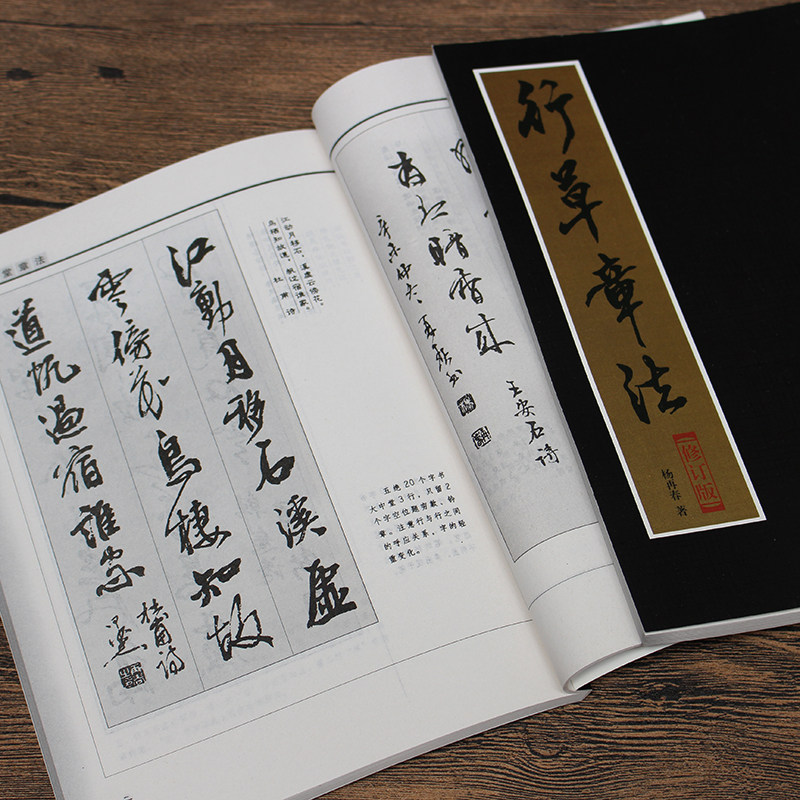 堂章法
江動月移石溪虛
雲傍花鳥棲知故
道帆過宿誰家
杜甫詩
江动月移石，溪虚云傍花。
鸟栖知故道，帆过宿谁家。
杜 甫 诗
五绝20个字书
大中堂3行，只留2
个字空位题穷款、钤
章。注意行与行之间
的呼应关系，字的轻
重变化。
暗香來
王安石詩
行草章法
修订版
杨再春 著